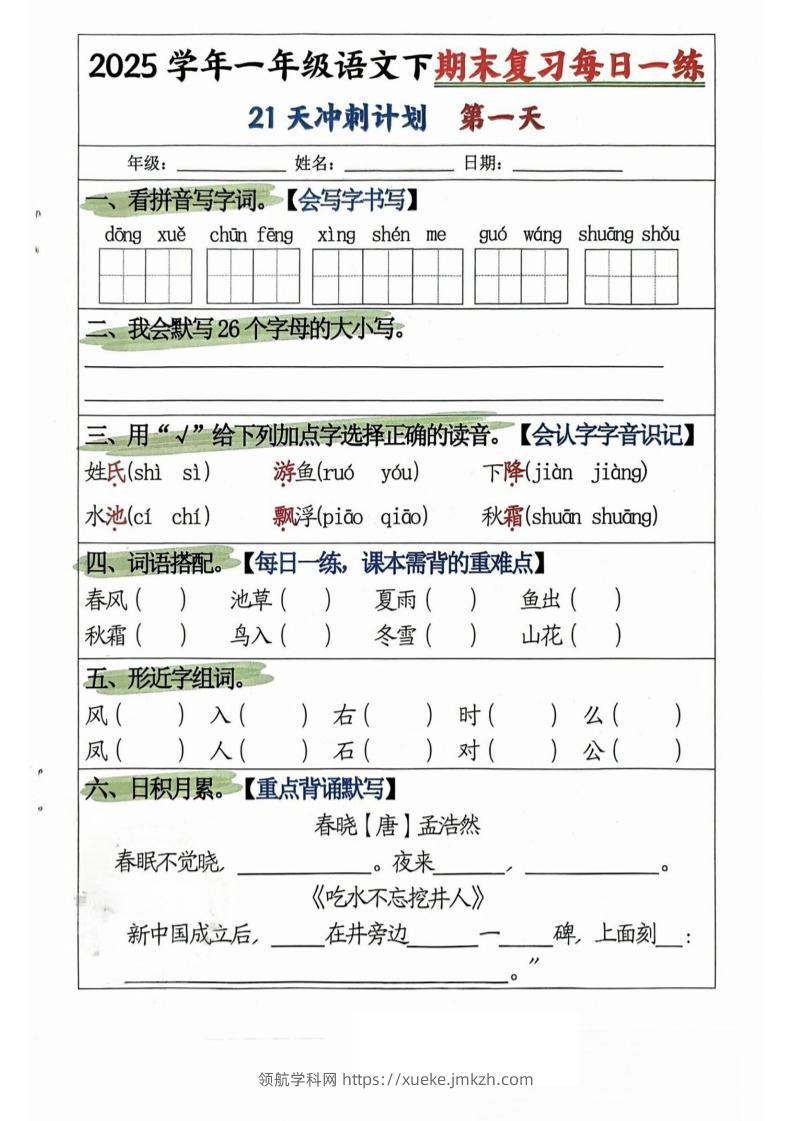 2025 学年一年级语文下期末复习每日一练
21 天冲刺计划 第一天
年级：________ 姓名：________ 日期：________
一、看拼音写字词。【会写字书写】
dōng xuě chūn fēng xìng shén me guó wáng shuāng shǒu
二、我会默写 26 个字母的大小写。
三、用“√”给下列加点字选择正确的读音。【会认字字音识记】
姓氏(shì sì) 游鱼(ruó yóu) 下降(jiàn jiàng)
水池(cí chí) 飘浮(piāo qiāo) 秋霜(shuān shuāng)
四、词语搭配。【每日一练，课本需背的重难点】
春风（ ） 池草（ ） 夏雨（ ） 鱼出（ ）
秋霜（ ） 鸟入（ ） 冬雪（ ） 山花（ ）
五、形近字组词。
风（ ） 入（ ） 右（ ） 时（ ） 么（ ）
凤（ ） 人（ ） 石（ ） 对（ ） 公（ ）
六、日积月累。【重点背诵默写】
春晓【唐】孟浩然
春眠不觉晓，________。夜来________，________。
《吃水不忘挖井人》
新中国成立后，____在井旁边____一____碑，上面刻__：
________。”
领航学科网 https://xueke.jmkzh.com